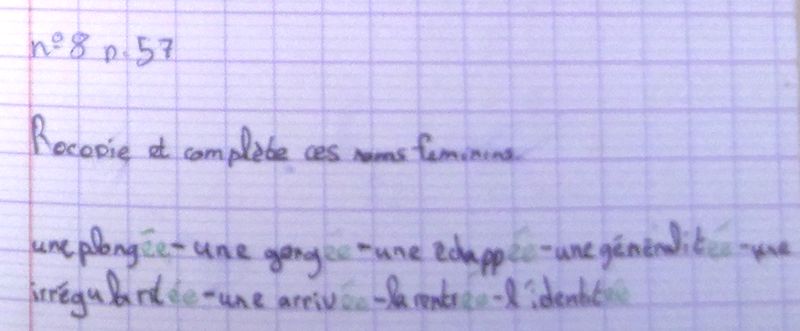 n°8 p.57
Recopie et complète ces noms feminins.
une plongée - une gorgée - une échappée - une généralitée - une
irrégularitée - une arrivée - la rentrée - l'identitée